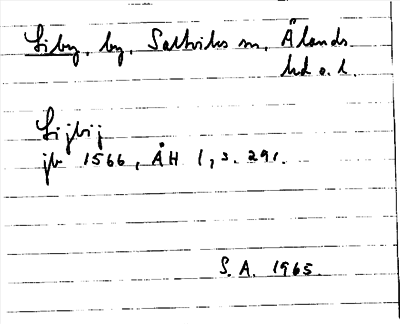 Liby, by, Saltviks sn, Ålands
hd o. l.
Lijbij
jb 1566, ÅH 1, s. 291.
S. A. 1965.